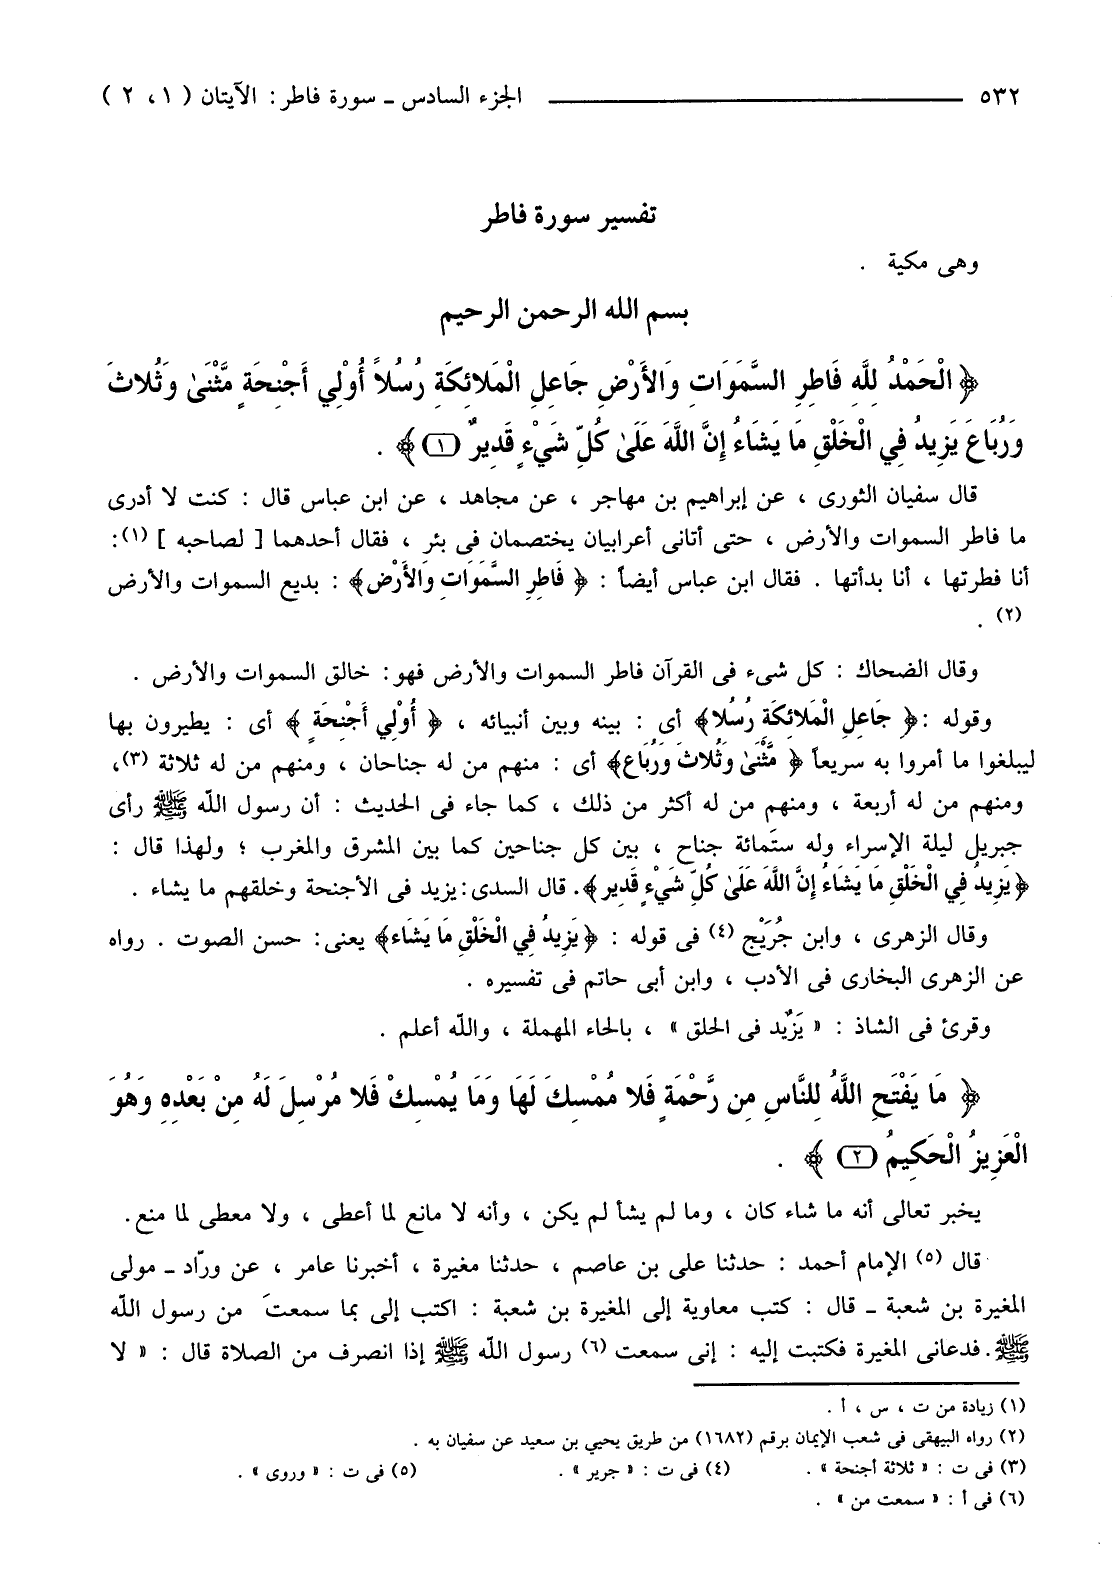 ٥٣٢ ــــــــــ الجزء السادس ـ سورة فاطر : الآيتان ( ١ ، ٢ )
تفسير سورة فاطر
وهى مكية .
بسم الله الرحمن الرحيم
﴿ الْحَمْدُ لِلَّهِ فَاطِرِ السَّمَوَاتِ وَالأَرْضِ جَاعِلِ الْمَلائِكَةِ رُسُلاً أُوْلِي أَجْنِحَةٍ مَّثْنَىٰ وَثُلاثَ
وَرُبَاعَ يَزِيدُ فِي الْخَلْقِ مَا يَشَاءُ إِنَّ اللَّهَ عَلَىٰ كُلِّ شَيْءٍ قَدِيرٌ (١) ﴾ .
قال سفيان الثورى ، عن إبراهيم بن مهاجر ، عن مجاهد ، عن ابن عباس قال : كنت لا أدرى
ما فاطر السموات والأرض ، حتى أتانى أعرابيان يختصمان فى بئر ، فقال أحدهما [ لصاحبه ] (١):
أنا فطرتها ، أنا بدأتها . فقال ابن عباس أيضاً : ﴿ فَاطِرِ السَّمَوَاتِ وَالأَرْضِ﴾ : بديع السموات والأرض
(٢) .
وقال الضحاك : كل شىء فى القرآن فاطر السموات والأرض فهو: خالق السموات والأرض .
وقوله :﴿ جَاعِلِ الْمَلائِكَةِ رُسُلا﴾ أى : بينه وبين أنبيائه ، ﴿ أُوْلِي أَجْنِحَةٍ ﴾ أى : يطيرون بها
ليبلغوا ما أمروا به سريعاً ﴿ مَّثْنَىٰ وَثُلاثَ وَرُبَاعَ﴾ أى : منهم من له جناحان ، ومنهم من له ثلاثة (٣)،
ومنهم من له أربعة ، ومنهم من له أكثر من ذلك ، كما جاء فى الحديث : أن رسول اللّه ﷺ رأى
جبريل ليلة الإسراء وله ستَمائة جناح ، بين كل جناحين كما بين المشرق والمغرب ؛ ولهذا قال :
﴿يَزِيدُ فِي الْخَلْقِ مَا يَشَاءُ إِنَّ اللَّهَ عَلَىٰ كُلِّ شَيْءٍ قَدِير﴾. قال السدى:يزيد فى الأجنحة وخلقهم ما يشاء .
وقال الزهرى ، وابن جُرَيْج (٤) فى قوله : ﴿يَزِيدُ فِي الْخَلْقِ مَا يَشَاء﴾ يعنى: حسن الصوت . رواه
عن الزهرى البخارى فى الأدب ، وابن أبى حاتم فى تفسيره .
وقرئ فى الشاذ : « يَزِيد فى الحلق » ، بالحاء المهملة ، واللّه أعلم .
﴿ مَا يَفْتَحِ اللَّهُ لِلنَّاسِ مِن رَّحْمَةٍ فَلا مُمْسِكَ لَهَا وَمَا يُمْسِكْ فَلا مُرْسِلَ لَهُ مِنْ بَعْدِهِ وَهُوَ
الْعَزِيزُ الْحَكِيمُ (٢) ﴾ .
يخبر تعالى أنه ما شاء كان ، وما لم يشأ لم يكن ، وأنه لا مانع لما أعطى ، ولا معطى لما منع.
قال (٥) الإمام أحمد : حدثنا على بن عاصم ، حدثنا مغيرة ، أخبرنا عامر ، عن ورّاد ـ مولى
المغيرة بن شعبة ـ قال : كتب معاوية إلى المغيرة بن شعبة : اكتب إلى بما سمعتَ من رسول اللّه
ﷺ.فدعانى المغيرة فكتبت إليه : إنى سمعت (٦) رسول اللّه ﷺ إذا انصرف من الصلاة قال : « لا
(١) زيادة من ت ، س ، أ .
(٢) رواه البيهقى فى شعب الإيمان برقم (١٦٨٢) من طريق يحيي بن سعيد عن سفيان به .
(٣) فى ت : « ثلاثة أجنحة » . (٤) فى ت : « جرير » . (٥) فى ت : « وروى » .
(٦) فى أ : « سمعت من » .